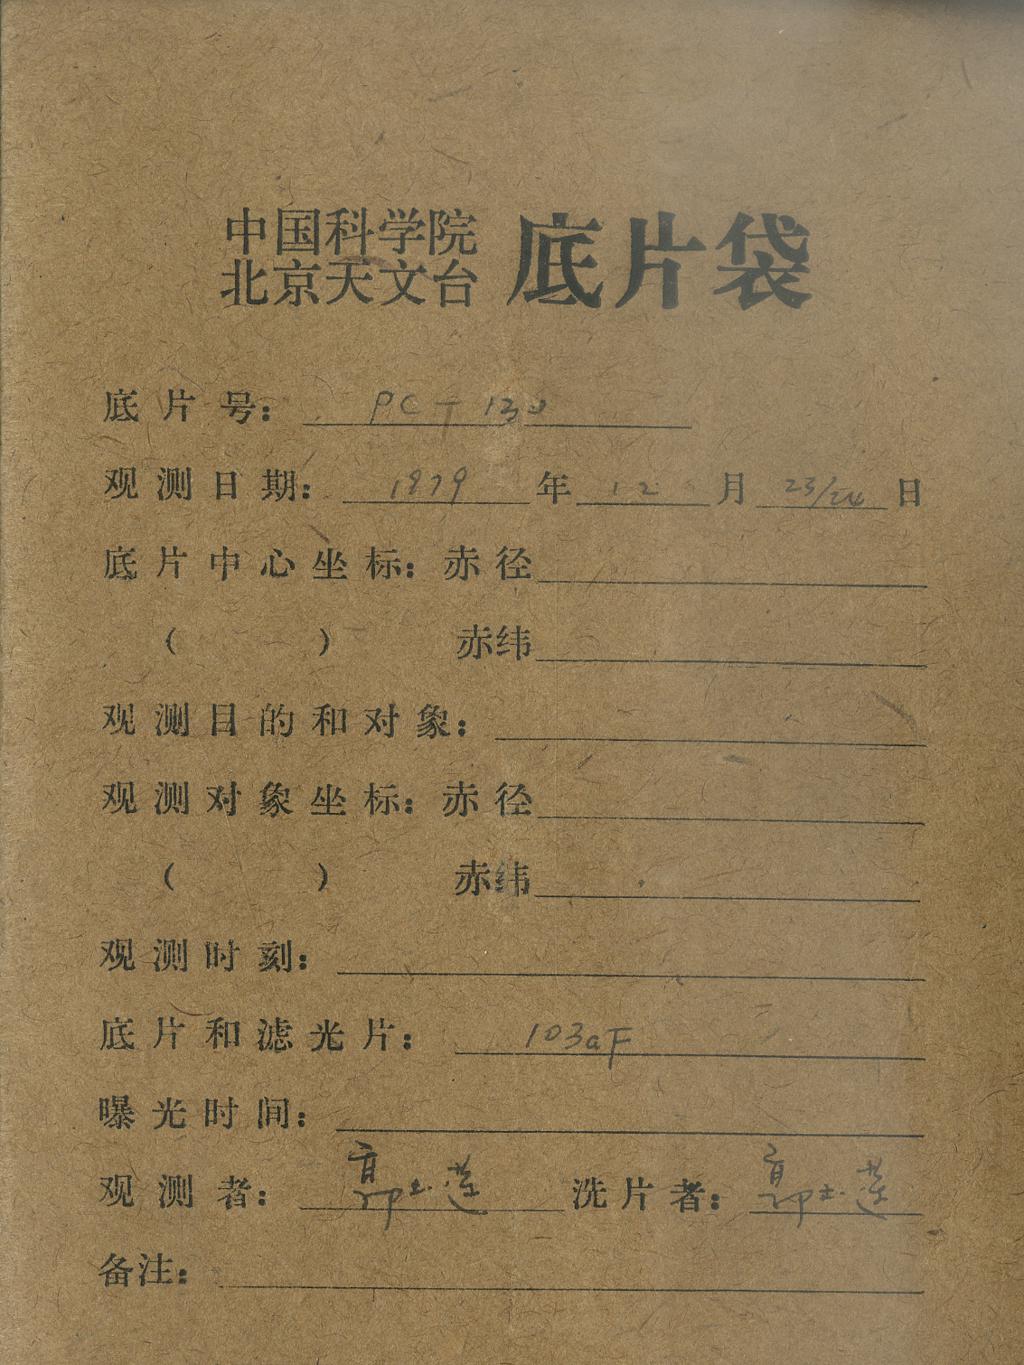 中国科学院
北京天文台
底片袋
底片号： PC-130
观测日期： 1979 年 12 月 23/24 日
底片中心坐标：赤径
（ ） 赤纬
观测目的和对象：
观测对象坐标：赤径
（ ） 赤纬
观测时刻：
底片和滤光片： 103aF
曝光时间：
观测者： 洗片者：
备注：